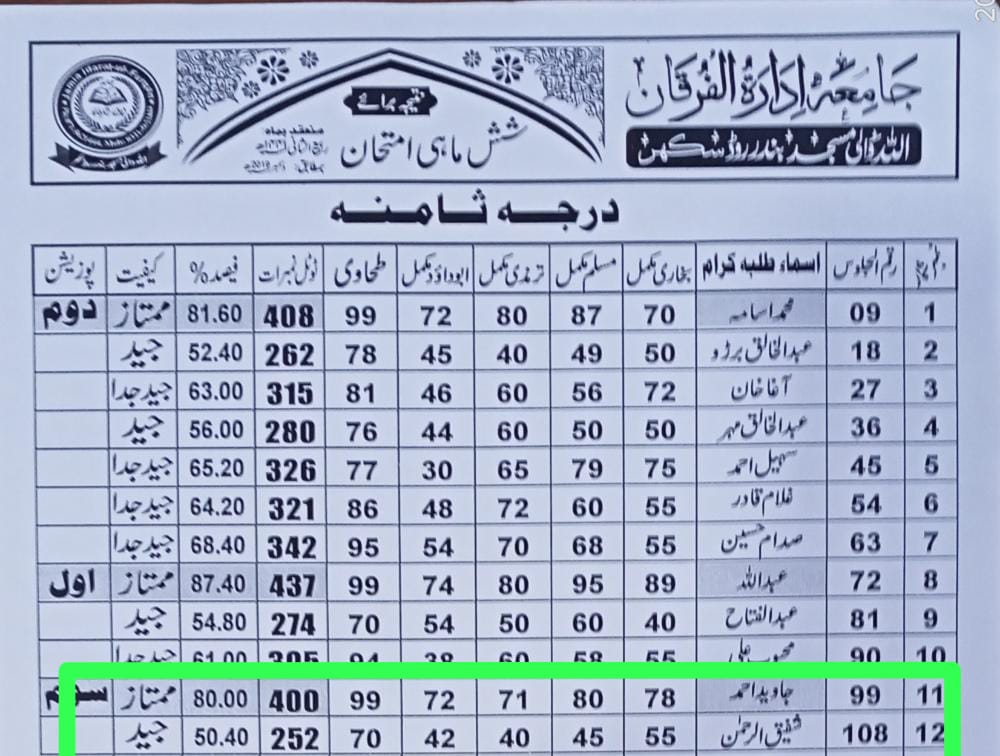 جامعہ إدارة الفرقان
اللہ والی مسجد بندر روڈ سکھر
نتیجہ برائے
شش ماہی امتحان
منعقد بماہ
درجہ ثامنہ
رقم الجلوس اسماء طلبہ کرام بخاری مکمل مسلم مکمل ترمذی مکمل ابوداؤد مکمل طحاوی ٹوٹل نمبرات فیصد% کیفیت پوزیشن
1 09 محمد اسامہ 70 87 80 72 99 408 81.60 ممتاز دوم
2 18 عبدالخالق برڑو 50 49 40 45 78 262 52.40 جید
3 27 آغا خان 72 56 60 46 81 315 63.00 جید جدا
4 36 عبدالخالق مہر 50 50 60 44 76 280 56.00 جید
5 45 سہیل احمد 75 79 65 30 77 326 65.20 جید جدا
6 54 غلام قادر 55 60 72 48 86 321 64.20 جید جدا
7 63 صدام حسین 55 68 70 54 95 342 68.40 جید جدا
8 72 عبداللہ 89 95 80 74 99 437 87.40 ممتاز اول
9 81 عبدالفتاح 40 60 50 54 70 274 54.80 جید
10 90 محبوب علی 55 58 60 38 94 305 61.00 جید جدا
11 99 جاوید احمد 78 80 71 72 99 400 80.00 ممتاز سوم
12 108 شفیق الرحمٰن 55 45 40 42 70 252 50.40 جید